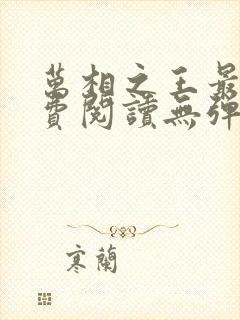 萬相之王最
費閱讀無彈
寒蘭